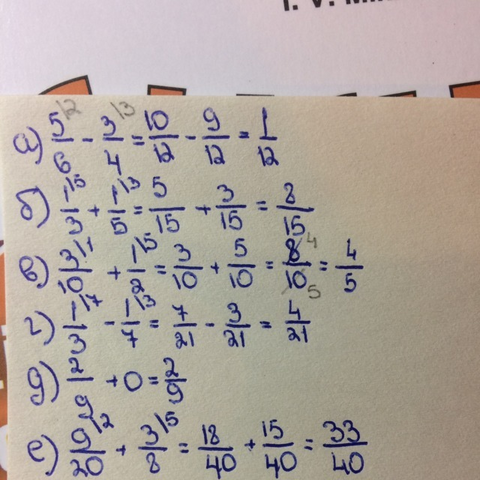 а) 5/6 \2 - 3/4 \3 = 10/12 - 9/12 = 1/12
б) 1/3 \5 + 1/5 \3 = 5/15 + 3/15 = 8/15
в) 3/10 \1 + 1/2 \5 = 3/10 + 5/10 = 8/10 4 5 = 4/5
г) 1/3 \7 - 1/7 \3 = 7/21 - 3/21 = 4/21
д) 2/9 + 0 = 2/9
е) 9/20 \2 + 3/8 \5 = 18/40 + 15/40 = 33/40